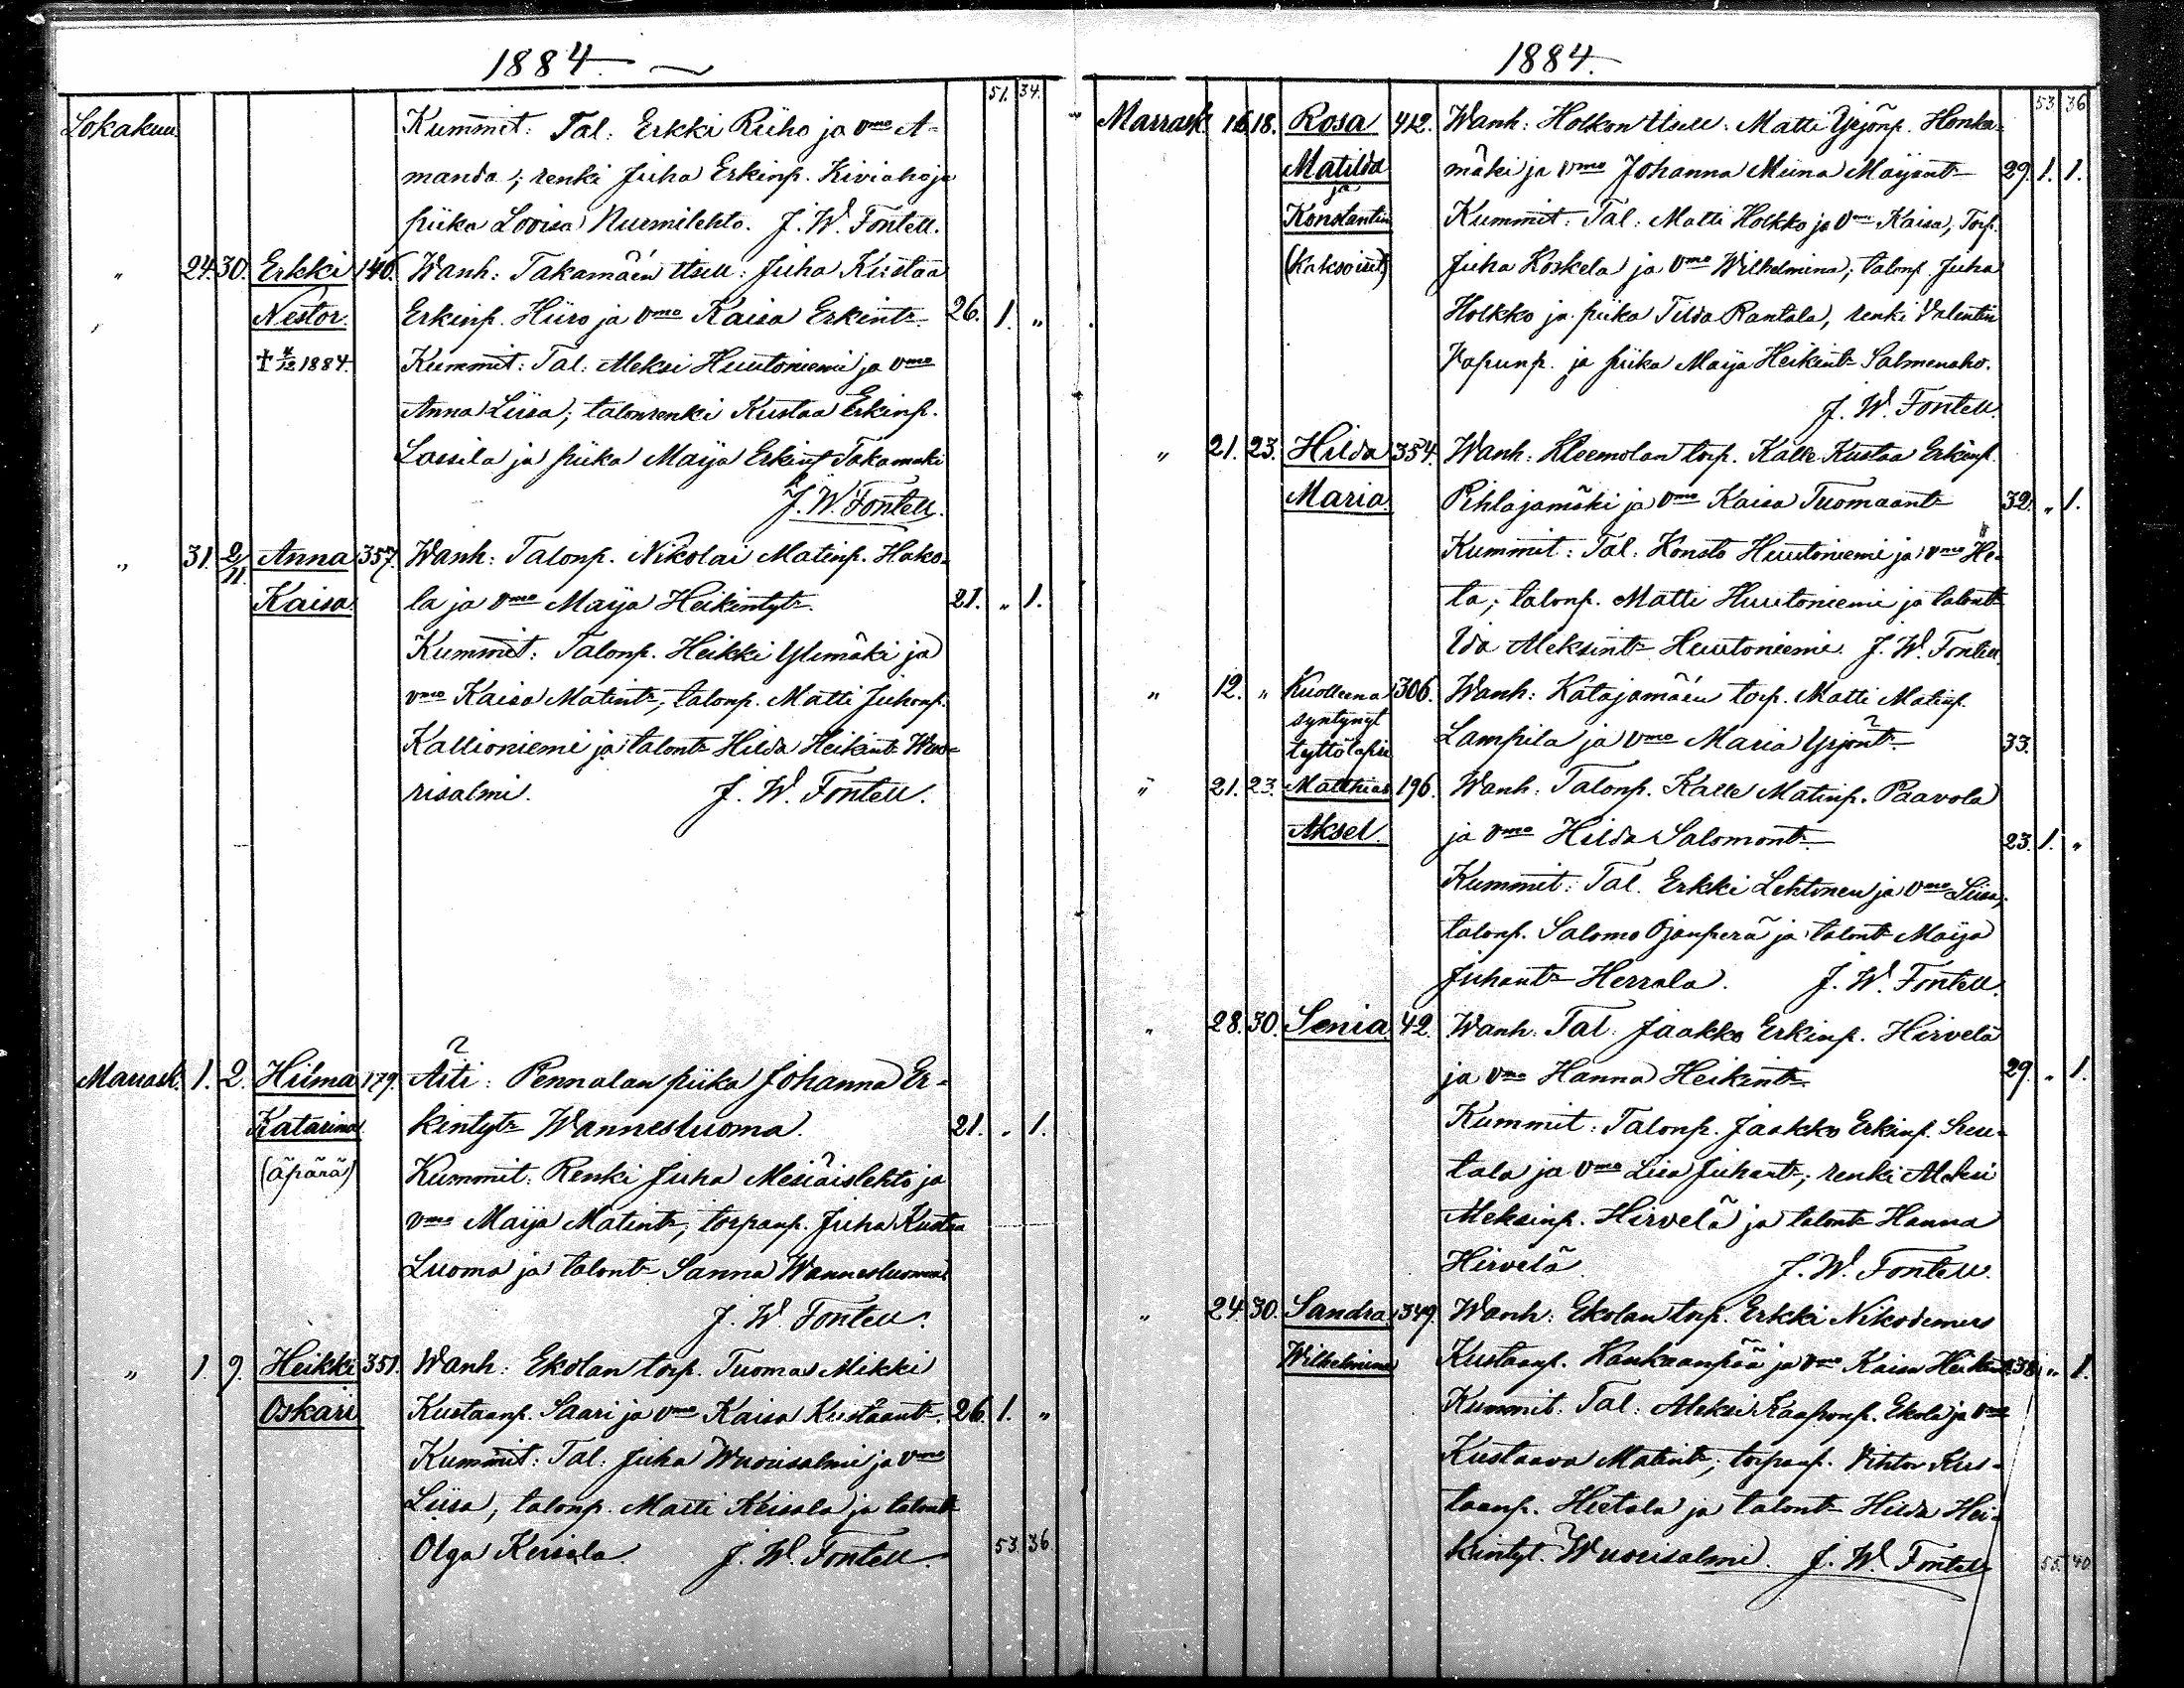 1884.
51. 34.
Lokakuu Kummit: Tal: Erkki Riiho ja vmo A-
manda; renki Juha Erkinp. Kiviahoja
piika Lovisa Nurmilehto. J. W. Fontell.
" 24. 30. Erkki 140. Wanh: Takamäen itsell: Juha Kustaa
Nestor. Erkinp. Hiiro ja vmo Kaisa Erkint. 26. 1. "
† 4/12 1884. Kummit: Tal: Aleksi Huutoniemi ja vmo
Anna Liisa; talonrenki Kustaa Erkinp.
Lassila ja piika Maija Erkint Takamäki
J. W. Fontell.
" 31. 2/11. Anna 357. Wanh: Talonp. Nikolai Matinp. Hako-
Kaisa. la ja vmo Maija Heikintyt. 21. " 1.
Kummit: Talonp. Heikki Ylimäki ja
vmo Kaisa Matint; talonp. Matti Juhonp.
Kallioniemi ja talont Hilda Heikint Wuo-
risalmi. J. W. Fontell.
Marrask. 1. 2. Hilma 179. Äiti: Pennalan piika Johanna Er-
Katarina kintyt Wannesluoma. 21. " 1.
(äpärä) Kummit: Renki Juha Mesiäislehto ja
vmo Maija Matint; torpanp. Juha Kustaa
Luoma ja talont Sanna Wannesluoma
J. W. Fontell.
" 1. 9. Heikki 351. Wanh: Ekolan torp. Tuomas Mikki
Oskari Kustaanp. Saari ja vmo Kaisa Kustaant. 26. 1. "
Kummit: Tal: Juha Wuorisalmi ja vmo
Liisa; talonp. Matti Keisala ja talont
Olga Keisala. J. W. Fontell. 53. 36.
1884.
53 36
Marrask. 16. 18. Rosa 412. Wanh: Holkon itsell: Matti Yrjönp. Honka-
Matilda mäki ja vmo Johanna Miina Maijant 29. 1. 1.
ja
Konstantin Kummit: Tal: Matti Holkko ja vmo Kaisa, Torp.
(kaksoiset) Juha Koskela ja vmo Wilhelmina; talonp. Juha
Holkko ja piika Tilda Rantala, renki Valentin
Vapunp. ja piika Maija Heikint Salmenaho.
J. W. Fontell.
" 21. 23. Hilda 354. Wanh: Kleemolan torp. Kalle Kustaa Erkinp.
Maria. Pihlajamäki ja vmo Kaisa Tuomaant 32. " 1.
Kummit: Tal: Konsta Huutoniemi ja vmo He-
ta; talonp. Matti Huutoniemi ja talont
Ida Aleksint Huutoniemi. J. W. Fontell.
" 12. " Kuolleena 306. Wanh: Katajamäen torp. Matti Matinp.
syntynyt
tyttölapsi Lampila ja vmo Maria Yrjönt 33.
" 21. 23. Matthias 196. Wanh: Talonp. Kalle Matinp. Paavola
Aksel. ja vmo Hilda Salomont. 23. 1. "
Kummit: Tal. Erkki Lehtinen ja vmo Liisa;
talonp. Salomo Ojanperä ja talont Maija
Juhant Herrala. J. W. Fontell.
" 28. 30. Senia 42. Wanh: Tal: Jaakko Erkinp. Hirvelä
ja vmo Hanna Heikint. 29. " 1.
Kummit: Talonp. Jaakko Erkinp.
tala ja vmo Liisa Juhant; renki Aleksi
Aleksinp. Hirvelä ja talont Hanna
Hirvelä J. W. Fontell.
" 24. 30. Sandra 349. Wanh: Ekolan torp. Erkki Nikodemus
Wilhelmina Kustaanp. Haukaanpää ja vmo Kaisa Heikint. 38. " 1.
Kummit: Tal: Aleksi Kaaponp. Ekola ja vmo
Kustaava Matint; torpanp. Vihtor Kus-
taanp. Hietala ja talont Hilda Hei-
kintyt. Wuorisalmi. J. W. Fontell 55. 40